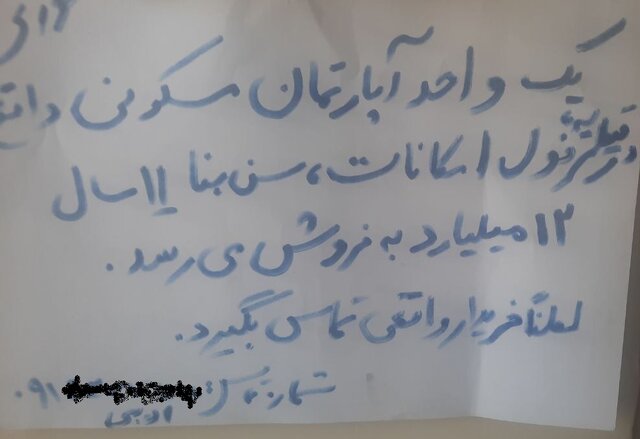 یک واحد آپارتمان مسکونی واقع
در قیطریه، فول امکانات، سن بنا ۱۱ سال
۱۲ میلیارد به فروش می رسد.
لطفاً خریدار واقعی تماس بگیرد.
شماره تماس: ۰۹۱